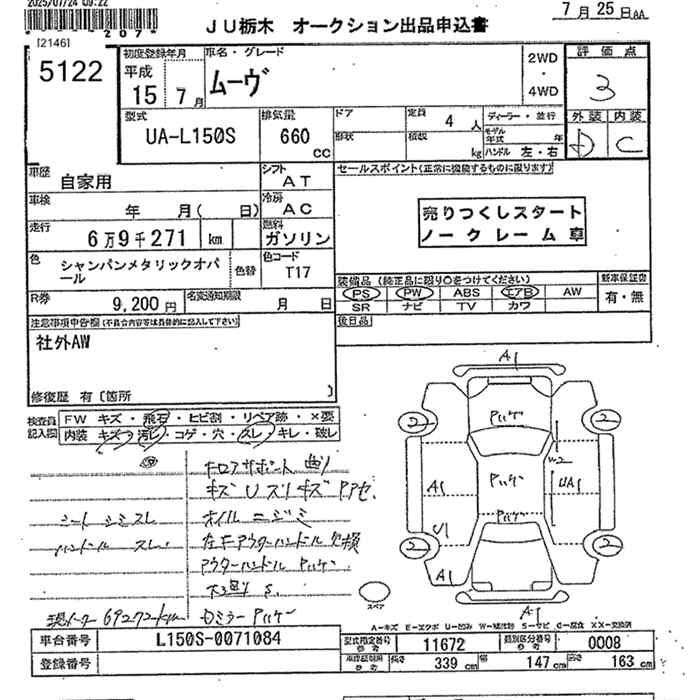 2025/07/24 09:22
*       207*
[2146]
JU栃木 オークション出品申込書
7月25日AA
5122
初度登録年月
平成
15 7月
車名・グレード
ムーヴ
2WD
・
4WD
評価点
3
型式
UA-L150S
排気量
660
cc
ドア
定員
4 人
形状
積載
kg
ディーラー・並行
モデル
年式 年
ハンドル 左・右
外装 内装
D C
車歴
自家用
シフト
AT
セールスポイント(正常に機能するものに限ります)
車検
年 月( 日)
冷房
AC
走行
6万9千271 km
燃料
ガソリン
売りつくしスタート
ノークレーム車
色
シャンパンメタリックオパール
色替
色コード
T17
装備品 (純正品に限り○をつけてください)
新車保証書
PS PW ABS エアB AW
SR ナビ TV カワ
有・無
R券
9,200円
名変通知期限
月 日
後日品
注意事項申告欄(不具合内容等は具体的に記入して下さい)
社外AW
修復歴 有〔箇所 〕
検査員
記入欄
FW キズ・飛石・ヒビ割・リペア跡・×要
内装 キズ・汚れ・コゲ・穴・スレ・キレ・破レ
キズ Uズリキズ
シート シミ スレ
オイルニジミ
ハンドル スレ
左Fアウターハンドル欠損
アウターハンドル
下廻り S
現メーター 69272km
A1
2
2
A1
W2
UA1
U1
2
2
A1
A1
スペア
A-キズ E-エクボ U-凹み W-補修跡 S-サビ C-腐食 XX-交換済
車台番号
L150S-0071084
登録番号
型式指定番号
参考
11672
類別区分番号
参考
0008
長さ 339 cm
幅 147 cm
高さ 163 cm